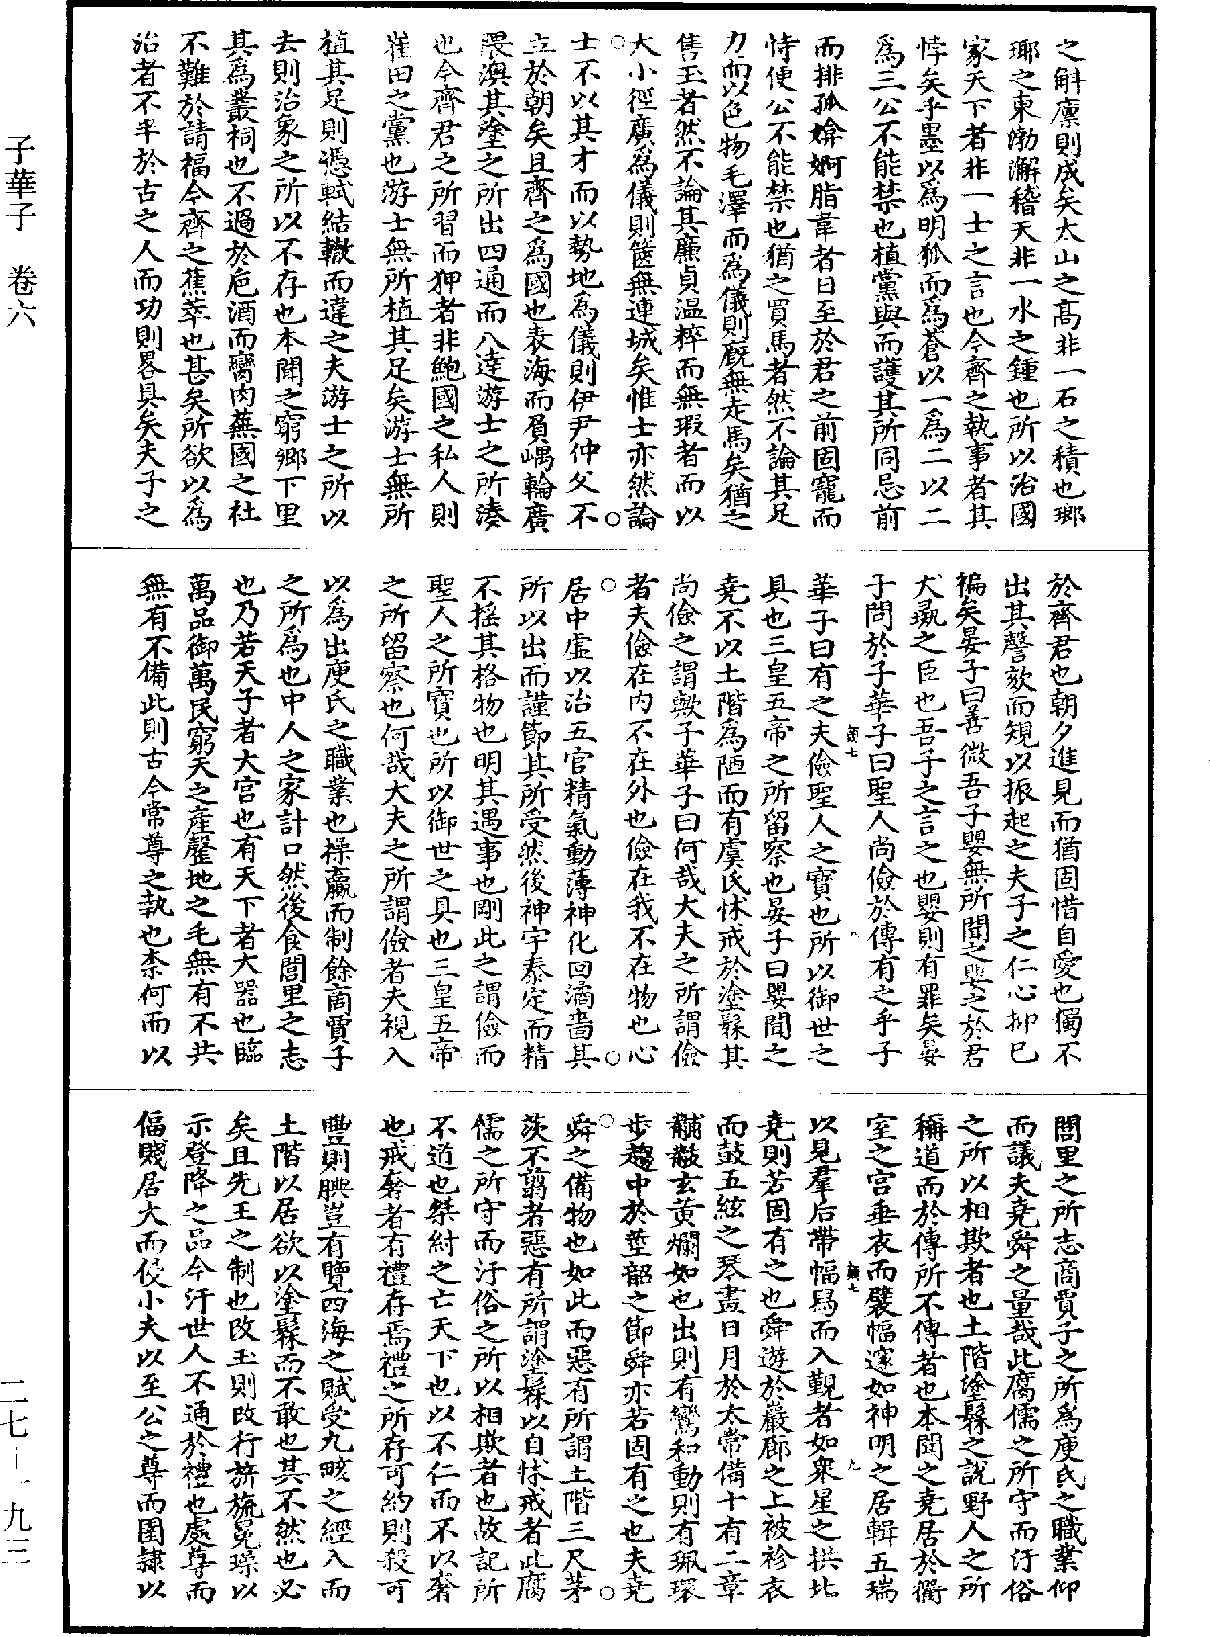 之斛廩則成矣太山之高非一石之積也瑯
瑯之東渤澥稽天非一水之鍾也所以治國
家天下者非一士之言也今齊之執事者其
悖矣乎墨以為明狐而為蒼以一為二以二
為三公不能禁也植黨與而護其所同忌前
而排孤媕婀脂韋者日至於君之前固寵而
恃使公不能禁也猶之買馬者然不論其足
力而以色物毛澤而為儀則廐無走馬矣猶之
售玉者然不論其廉貞溫粹而無瑕者而以
大小徑廣為儀則篋無連城矣惟士亦然論
士不以其才而以勢地為儀則伊尹仲父不
立於朝矣且齊之為國也表海而負嵎輪廣
隈澳其塗之所出四通而八達游士之所湊
也今齊君之所習而狎者非鮑國之私人則
崔田之黨也游士無所植其足矣游士無所
植其足則憑軾結轍而違之夫游士之所以
去則治象之所以不存也本聞之窮鄉下里
其為叢祠也不過於卮酒而臠肉蕪國之社
不難於請福今齊之蕉萃也甚矣所欲以為
治者不半於古之人而功則畧具矣夫子之
於齊君也朝夕進見而猶固惜自愛也獨不
出其謦欬而規以振起之夫子之仁心抑已
褊矣晏子曰善微吾子嬰無所聞之嬰之於君
犬彘之臣也吾子之言之也嬰則有罪矣晏
子問於子華子曰聖人尚儉於傳有之乎子
華子曰有之夫儉聖人之寶也所以御世之
具也三皇五帝之所留察也晏子曰嬰聞之
堯不以土階為陋而有虞氏怵戒於塗髹其
尚儉之謂歟子華子曰何哉大夫之所謂儉
者夫儉在內不在外也儉在我不在物也心
居中虛以治五官精氣動薄神化回潏嗇其
所以出而謹節其所受然後神宇泰定而精
不搖其格物也明其遇事也剛此之謂儉而
聖人之所寶也所以御世之具也三皇五帝
之所留察也何哉大夫之所謂儉者夫視入
以為出庾氏之職業也操贏而制餘商賈子
之所為也中人之家計口然後食閭里之志
也乃若天子者大宮也有天下者大器也臨
萬品御萬民窮天之產罄地之毛無有不共
無有不備此則古今常尊之執也柰何而以
閭里之所志商賈子之所為庾氏之職業仰
而議夫堯舜之量哉此腐儒之所守而汙俗
之所以相欺者也土階塗髹之說野人之所
稱道而於傳所不傳者也本聞之堯居於衢
室之宮垂衣而襞幅邃如神明之居輯五瑞
以見羣后帶幅舄而入覲者如眾星之拱北
堯則若固有之也舜遊於巖廊之上被袗衣
而鼓五絃之琴畫日月於太常備十有二章
黼黻玄黃爛如也出則有鸞和動則有珮環
步趨中於莖韶之節舜亦若固有之也夫堯
舜之備物也如此而惡有所謂土階三尺茅
茨不翦者惡有所謂塗髹以自怵戒者此腐
儒之所守而汙俗之所以相欺者也故記所
不道也桀紂之亡天下也以不仁而不以奢
也戒奢者有禮存焉禮之所存可約則殺可
豐則腆豈有覽四海之賦受九畡之經入而
土階以居欲以塗髹而不敢也其不然也必
矣且先王之制也改玉則改行旂旒冕璪以
示登降之品今汙世人不通於禮也處尊而
偪賤居大而侵小夫以至公之尊而圉隸以
子華子 卷六
二七-一九三